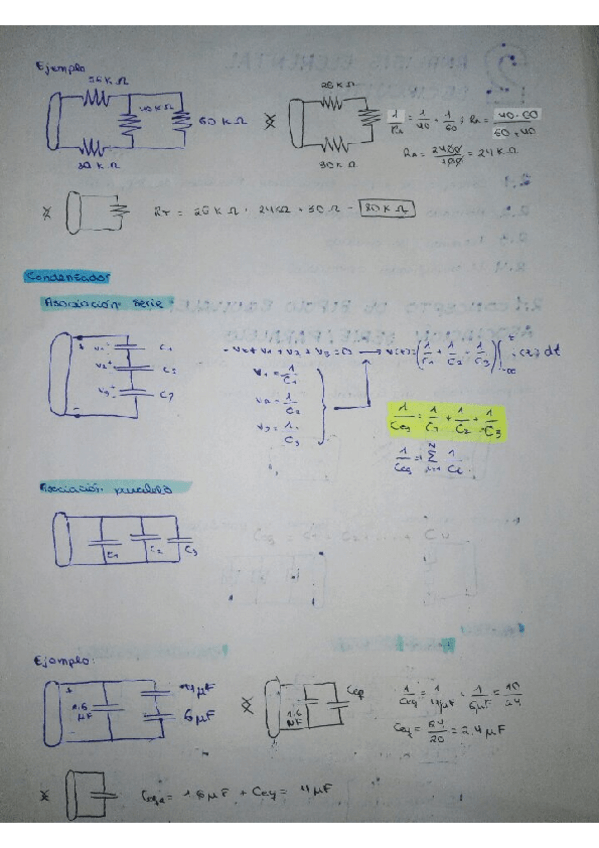 Ejemplo
26K Ω
40K Ω
60K Ω
30K Ω
26K Ω
30K Ω
1/Ra = 1/40 + 1/60 ; Ra = 40·60/60+40
Ra = 2400/100 = 24K Ω
RT = 26KΩ + 24KΩ + 30 Ω = 80K Ω
Condensador
Asociación serie:
+
V1
C1
V2
C2
V3
C3
-
V1 = 1/C1
V2 = 1/C2
V3 = 1/C3
1/Ceq = 1/C1 + 1/C2 + 1/C3
Asociación paralelo
C1
C2
C3
Ejemplo:
+
4μF
1.6 μF
6μF
-
1.6 μF
Ceq
1/Ceq = 1/4μF + 1/6μF = 10/24
2.4 μF
1.6μF + Ceq = 4μF